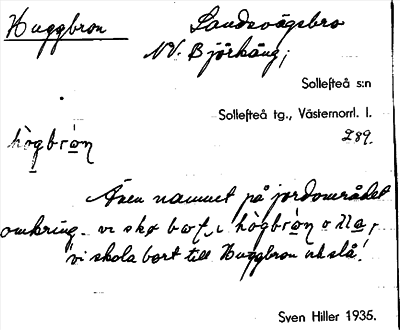 Huggbron
Landsvägsbro
NV. Björkäng;
Sollefteå s:n
Sollefteå tg., Västernorrl. l.
289.
hògbròn
Även namnet på jordområdet
omkring. vi skø bo̵t, i hògbròn o lla,
"vi skola bort till Huggbron och slå".
Sven Hiller 1935.